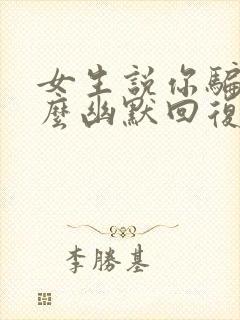 女生説你騙
麼幽默回復
李勝基